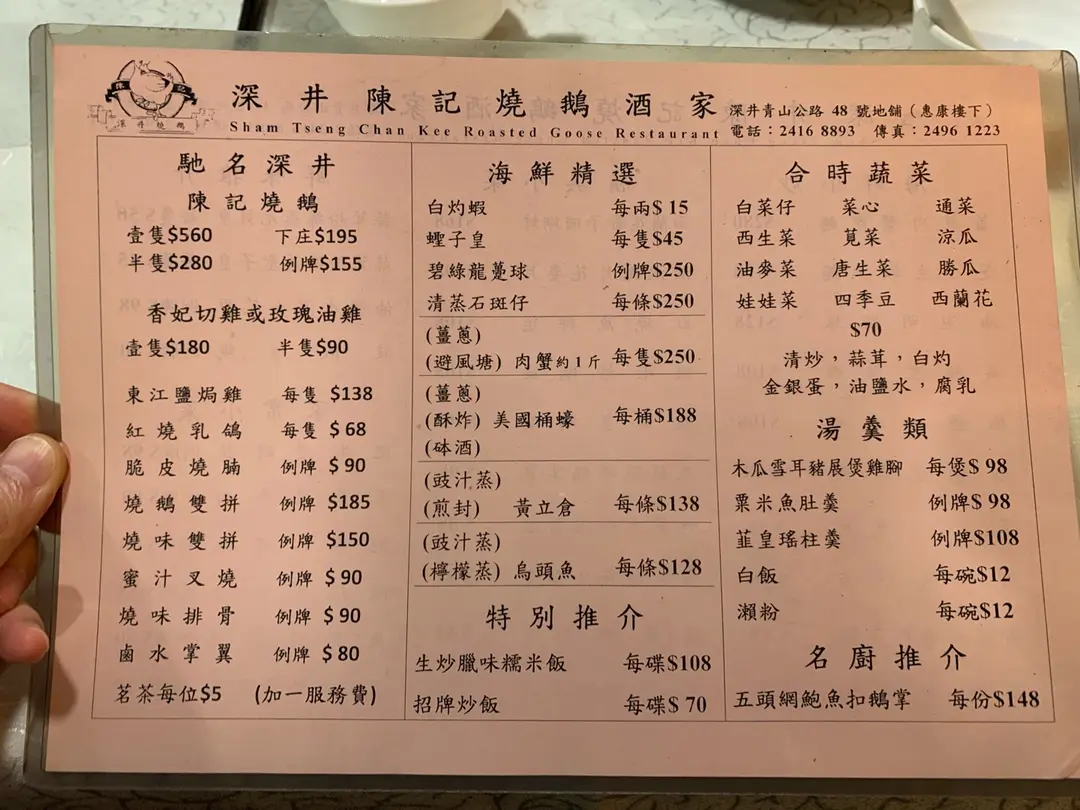 深井陳記燒鵝酒家
Sham Tseng Chan Kee Roasted Goose Restaurant
深井青山公路 48 號地舖（惠康樓下）
電話：2416 8893 傳真：2496 1223
陳記
深井燒鵝
馳名深井
陳記燒鵝
壹隻$560 下庄$195
半隻$280 例牌$155
香妃切雞或玫瑰油雞
壹隻$180 半隻$90
東江鹽焗雞 每隻 $138
紅燒乳鴿 每隻 $ 68
脆皮燒腩 例牌 $ 90
燒鵝雙拼 例牌 $185
燒味雙拼 例牌 $150
蜜汁叉燒 例牌 $ 90
燒味排骨 例牌 $ 90
鹵水掌翼 例牌 $ 80
茗茶每位$5 (加一服務費)
海鮮精選
白灼蝦 每兩$ 15
蟶子皇 每隻$45
碧綠龍躉球 例牌$250
清蒸石斑仔 每條$250
(薑蔥)
(避風塘) 肉蟹約1斤 每隻$250
(薑蔥)
(酥炸) 美國桶蠔 每桶$188
(砵酒)
(豉汁蒸)
(煎封) 黃立倉 每條$138
(豉汁蒸)
(檸檬蒸) 烏頭魚 每條$128
特別推介
生炒臘味糯米飯 每碟$108
招牌炒飯 每碟$ 70
合時蔬菜
白菜仔 菜心 通菜
西生菜 莧菜 涼瓜
油麥菜 唐生菜 勝瓜
娃娃菜 四季豆 西蘭花
$70
清炒，蒜茸，白灼
金銀蛋，油鹽水，腐乳
湯羹類
木瓜雪耳豬展煲雞腳 每煲$ 98
粟米魚肚羹 例牌$ 98
韮皇瑤柱羹 例牌$108
白飯 每碗$12
瀨粉 每碗$12
名廚推介
五頭網鮑魚扣鵝掌 每份$148